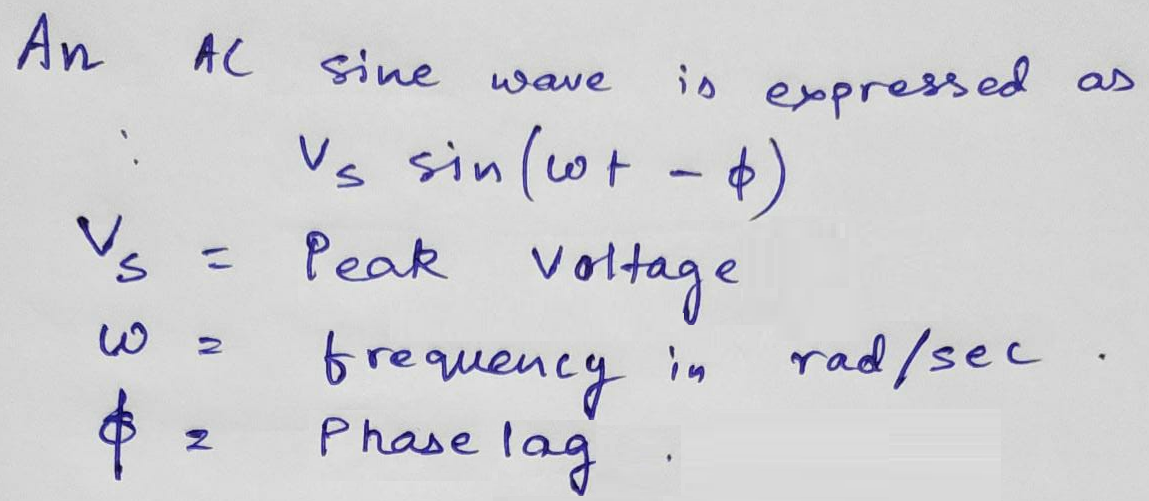 An AC sine wave is expressed as
: Vs sin(ωt - ϕ)
Vs = Peak Voltage
ω = frequency in rad/sec.
ϕ = Phase lag.